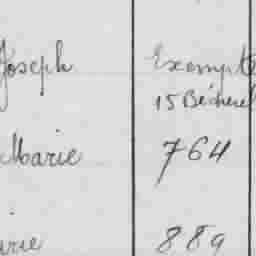 Joseph Exempté
15 Bécherel
Marie 764
889